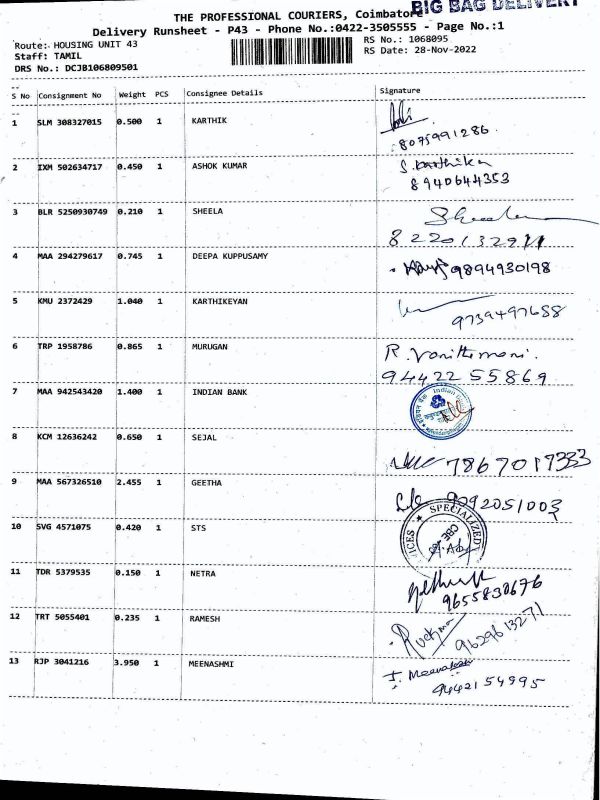 BIG BAG DELIVERY
THE PROFESSIONAL COURIERS, Coimbatore
Delivery Runsheet - P43 - Phone No.:0422-3505555 - Page No.:1
Route: HOUSING UNIT 43 RS No.: 1068095
Staff: TAMIL RS Date: 28-Nov-2022
DRS No.: DCJB106809501
S No Consignment No Weight PCS Consignee Details Signature
1 SLM 308327015 0.500 1 KARTHIK
8075991286
2 IXM 502634717 0.450 1 ASHOK KUMAR S. Karthika
8940644353
3 BLR 5250930749 0.210 1 SHEELA Sheela
4 MAA 294279617 0.745 1 DEEPA KUPPUSAMY 9894930198
5 KMU 2372429 1.040 1 KARTHIKEYAN
9739497688
6 TRP 1958786 0.865 1 MURUGAN R. Vanithamani.
9442255869
7 MAA 942543420 1.400 1 INDIAN BANK
8 KCM 12636242 0.650 1 SEJAL
9 MAA 567326510 2.455 1 GEETHA
10 SVG 4571075 0.420 1 STS SPECIALIZED
11 TDR 5379535 0.150 1 NETRA
9655830676
12 TRT 5055401 0.235 1 RAMESH
9629613271
13 RJP 3041216 3.950 1 MEENASHMI
9442154995